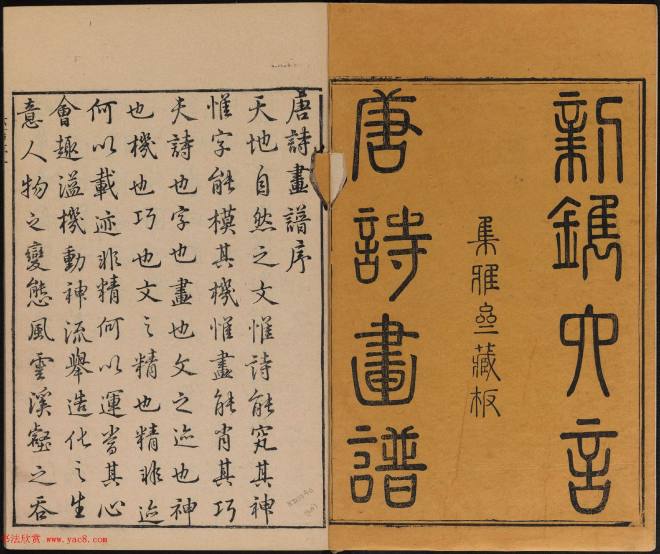 新鐫六言
集雅齋藏板
唐詩畫譜
唐詩畫譜序
天地自然之文惟詩能究其神
惟字能模其機惟畫能肖其巧
夫詩也字也畫也文之迹也神
也機也巧也文之精也精非迹
何以載迹非精何以運當其心
會趣溢機動神流舉造化之生
意人物之變態風雲溪壑之吞
书法欣赏 www.yac8.com